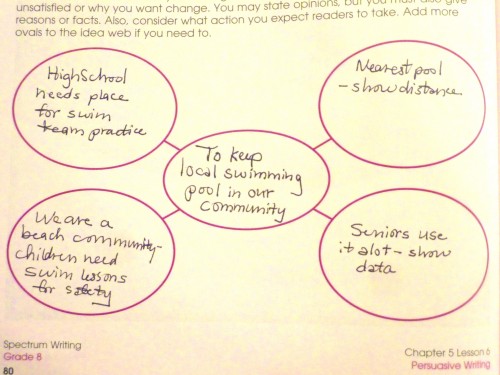 unsatisfied or why you want change. You may state opinions, but you must also give
reasons or facts. Also, consider what action you expect readers to take. Add more
ovals to the idea web if you need to.
HighSchool
needs place
for swim
team practice
Nearest pool
- show distance
To keep
local swimming
pool in our
community
We are a
beach community-
children need
swim lessons
for safety
Seniors use
it alot - show
data
Spectrum Writing
Grade 8
80
Chapter 5 Lesson 6
Persuasive Writing